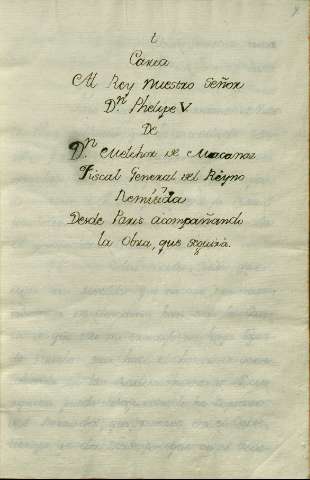 Carta
Al Rey nuestro Señor
D.n Phelipe V
De
D.n Melchor de Macanaz
Fiscal General del Reyno
Remitida
Desde Paris acompañando
la obra, que seguirá.